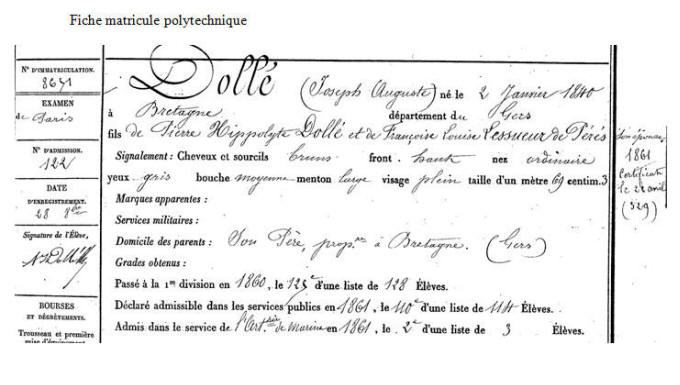 Fiche matricule polytechnique
N° D'IMMATRICULATION.
8631
EXAMEN
de Paris
N° D'ADMISSION.
122
DATE
D'ENREGISTREMENT.
28 8bre
Signature de l'Élève,
BOURSES
ET DÉGRÈVEMENTS.
Trousseau et première
mise d'équipement
Dollé (Joseph Auguste) né le 2 Janvier 1840
à Bretagne département du Gers
fils de Pierre Hippolyte Dollé et de Françoise Louise Lessueur de Pérés
Signalement : Cheveux et sourcils bruns front haut nez ordinaire
yeux gris bouche moyenne menton large visage plein taille d'un mètre 69 centim. 3
Marques apparentes :
Services militaires :
Domicile des parents : Son Père, propre à Bretagne. (Gers)
Grades obtenus :
Passé à la 1re division en 1860, le 125e d'une liste de 128 Élèves.
Déclaré admissible dans les services publics en 1861, le 110e d'une liste de 114 Élèves.
Admis dans le service de l'Artrie de Marine en 1861, le 2e d'une liste de 3 Élèves.
1861
Certificat
le 22 avril
(529)